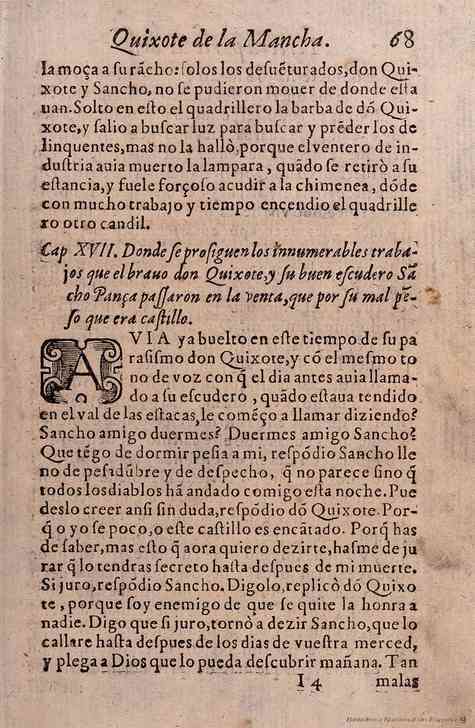 Quixote de la Mancha. 68
la moça a su rãcho: solos los desuẽturados, don Qui-
xote y Sancho, no se pudieron mouer de donde esta
uan. Solto en esto el quadrillero la barba de dõ Qui-
xote, y salio a buscar luz para buscar y prẽder los de
linquentes, mas no la hallò, porque el ventero de in-
dustria auia muerto la lampara, quãdo se retirò a su
estancia, y fuele forçoso acudir a la chimenea, dõde
con mucho trabajo y tiempo encendio el quadrille
ro otro candil.
Cap XVII. Donde se prosiguen los innumerables traba-
jos que el brauo don Quixote, y su buen escudero Sã
cho Pança passaron en la venta, que por su mal pẽ-
so que era castillo.
AVIA ya buelto en este tiempo de su pa
rasismo don Quixote, y cõ el mesmo to
no de voz con q̃ el dia antes auia llama-
do a su escudero, quãdo estaua tendido
en el val de las estacas, le comẽço a llamar diziendo?
Sancho amigo duermes? Duermes amigo Sancho?
Que tẽgo de dormir pesia a mi, respõdio Sancho lle
no de pesidũbre y de despecho, q̃ no parece sino q̃
todos los diablos hã andado comigo esta noche. Pue
deslo creer ansi sin duda, respõdio dõ Quixote. Por-
q̃ o yo se poco, o este castillo es encãtado. Porq̃ has
de saber, mas esto q̃ aora quiero dezirte, hasme de ju
rar q̃ lo tendras secreto hasta despues de mi muerte.
Si juro, respõdio Sancho. Digolo, replicò dõ Quixo
te, porque soy enemigo de que se quite la honra a
nadie. Digo que si juro, tornò a dezir Sancho, que lo
callare hasta despues de los dias de vuestra merced,
y plega a Dios que lo pueda descubrir mañana. Tan
I 4 malas